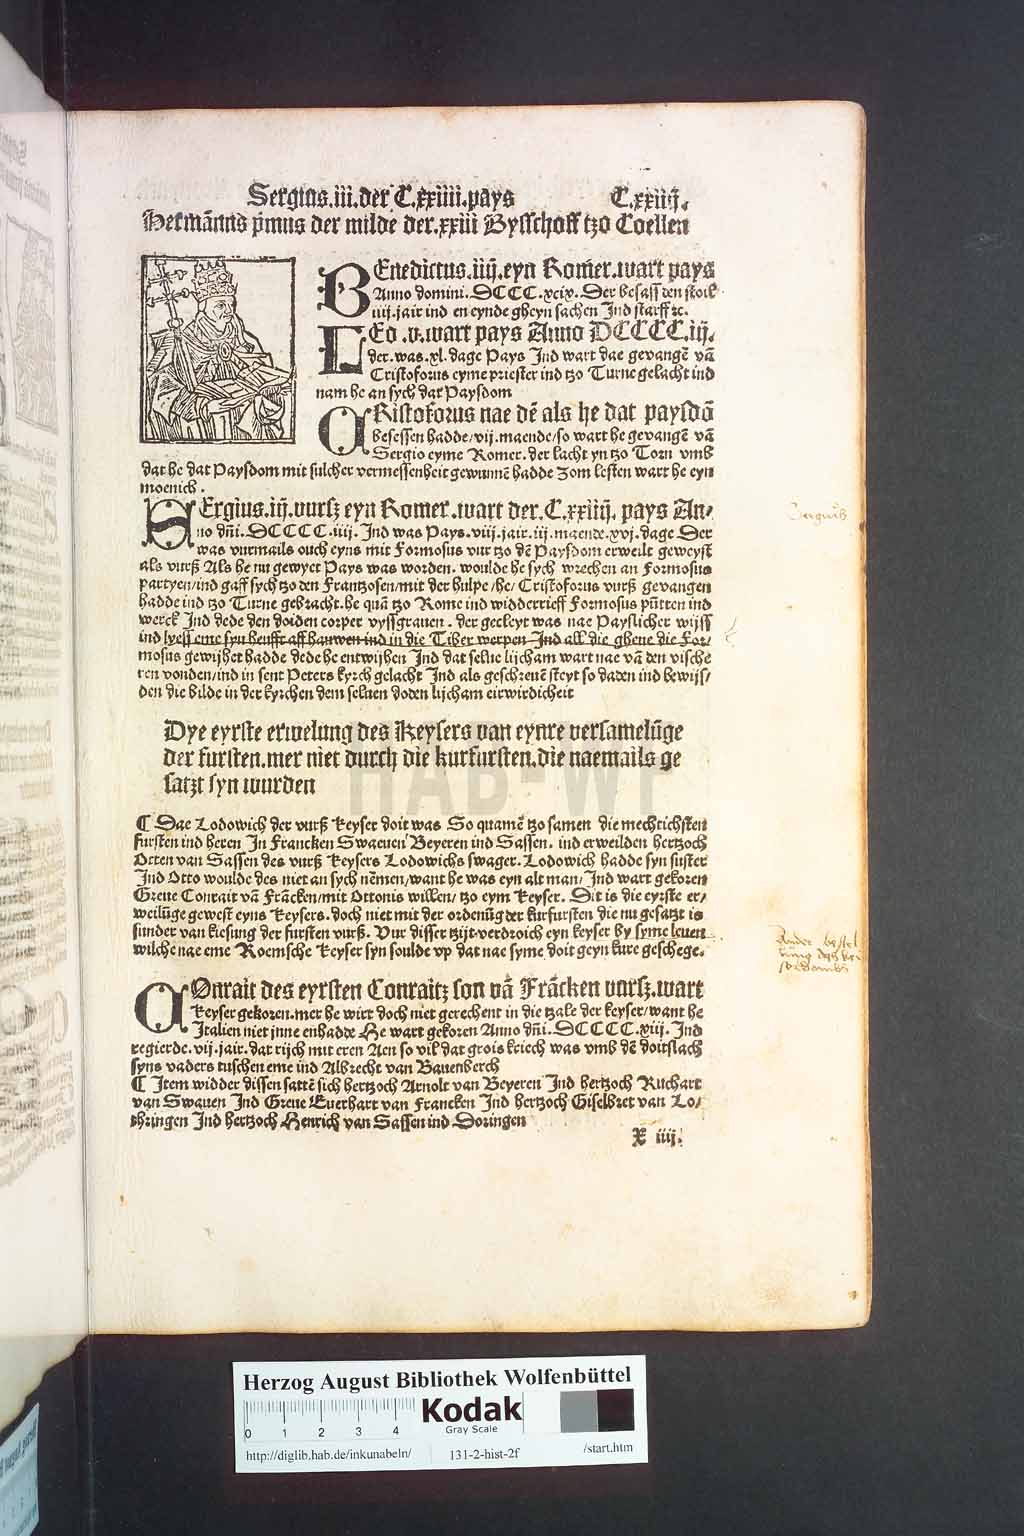 Sergius.iii.der C.xxiiii.pays C.xxiiij.
Hermãnus p̃mus der milde der.xxiii Bysschoff tzo Coellen
BEnedictus.iiij.eyn Romer.wart pays
Anno domini.DCCC.xcix.Der besass den stoil
iiij.jair ind en eynde gheyn sachen Ind starff ꝛc.
LEo.v.wart pays Anno DCCCC.iij.
der.was.xl.dage Pays Ind wart dae gevangẽ vã
Cristoforus eyme priester ind tzo Turne gelacht ind
nam he an sych dat Paysdom
CRistoforus nae dẽ als he dat paysdõ
besessen hadde/vij.maende/so wart he gevangẽ vã
Sergio eyme Romer.der lacht yn tzo Torn vmb
dat he dat Paysdom mit sulcher vermessenheit gewunnẽ hadde Zom lesten wart he eyn
moenich.
SErgius.iij.vursz eyn Romer.wart der.C.xxiiij.pays An/
no dñi.DCCCC.iiij.Ind was Pays.viij.jair.iij.maende.xvj.dage Der
was vurmails ouch eyns mit Formosus vur tzo dẽ Paysdom erweilt geweyst
als vurß Als he nu gewyet Pays was worden.woulde he sych wrechen an Formosus
partyen/ind gaff sych tzo den Frantzosen/mit der hulpe/he/Cristoforus vurß gevangen
hadde ind tzo Turne gebracht.he quã tzo Rome ind widderrieff Formosus pũtten ind
werck Ind dede den doiden corper vyssgrauen.der gecleyt was nae Payslicher wijss
ind lyess eme syn heufft aff hauwen ind in die Tiber werpen Ind all die ghene die For/
mosus gewijhet hadde dede he entwijhen Ind dat selue lijcham wart nae vã den vische
ren vonden/ind in sent Peters kyrch gelacht Ind als geschreuẽ steyt so daden ind bewijs/
den die bilde in der kyrchen dem seluen doden lijcham eirwirdicheit
Dye eyrste erwelung des Keysers van eynre versamelũge
der fursten.mer niet durch die kurfursten.die naemails ge
satzt syn wurden
¶ Dae Lodowich der vurß keyser doit was So quamẽ tzo samen die mechtichsten
fursten ind heren In Francken Swaeuen Beyeren ind Sassen.ind erweilden hertzoch
Otten van Sassen des vurß keysers Lodowichs swager.Lodowich hadde syn suster
Ind Otto woulde des niet an sych nẽmen/want he was eyn alt man/Ind wart gekoren
Greue Conrait vã Frãcken/mit Ottonis willen/tzo eym keyser.Dit is die eyrste er/
weilũge gewest eyns keysers.doch niet mit der ordenũg der kurfursten die nu gesatzt is
sunder van kiesung der fursten vurß.Vur disser tzijt verdroich eyn keyser by syme leuen
wilche nae eme Roemsche keyser syn soulde vp dat nae syme doit geyn kure geschege.
COnrait des eyrsten Conraitz son vã Frãcken vursz.wart
keyser gekoren.mer he wirt doch niet gerechent in die tzale der keyser/want he
Italien niet jnne enhadde He wart gekoren Anno dñi.DCCCC.xiij.Ind
regierde.vij.jair.dat rijch mit eren Aen so vil dat grois kriech was vmb dẽ doitslach
syns vaders tuschen eme ind Albrecht van Bauenberch
¶ Item widder dissen sattẽ sich hertzoch Arnolt van Beyeren Ind hertzoch Ruchart
van Swauen Ind Greue Euerhart van Francken Ind hertzoch Giselbret van Lo/
thringen Ind hertzoch Henrich van Sassen ind Doringen
X iiij.
HAB-WF
Herzog August Bibliothek Wolfenbüttel
0 1 2 3 4
Kodak
Gray Scale
http://diglib.hab.de/inkunabeln/ 131-2-hist-2f /start.htm